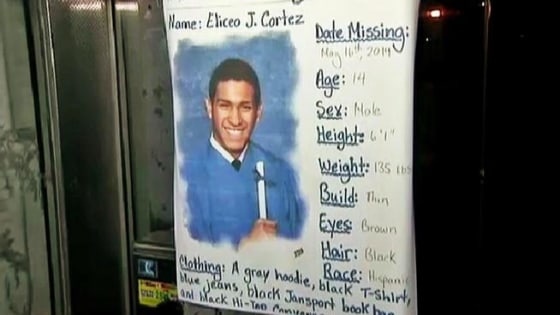 Name: Eliceo J. Cortez
Date Missing:
May 16th, 2014
Age: 14
Sex: Male
Height: 6'1"
Weight: 135 lbs
Build: Thin
Eyes: Brown
Hair: Black
Race: Hispanic
Clothing: A gray hoodie, black T-Shirt,
blue jeans, black Jansport book bag
and black Hi-Top